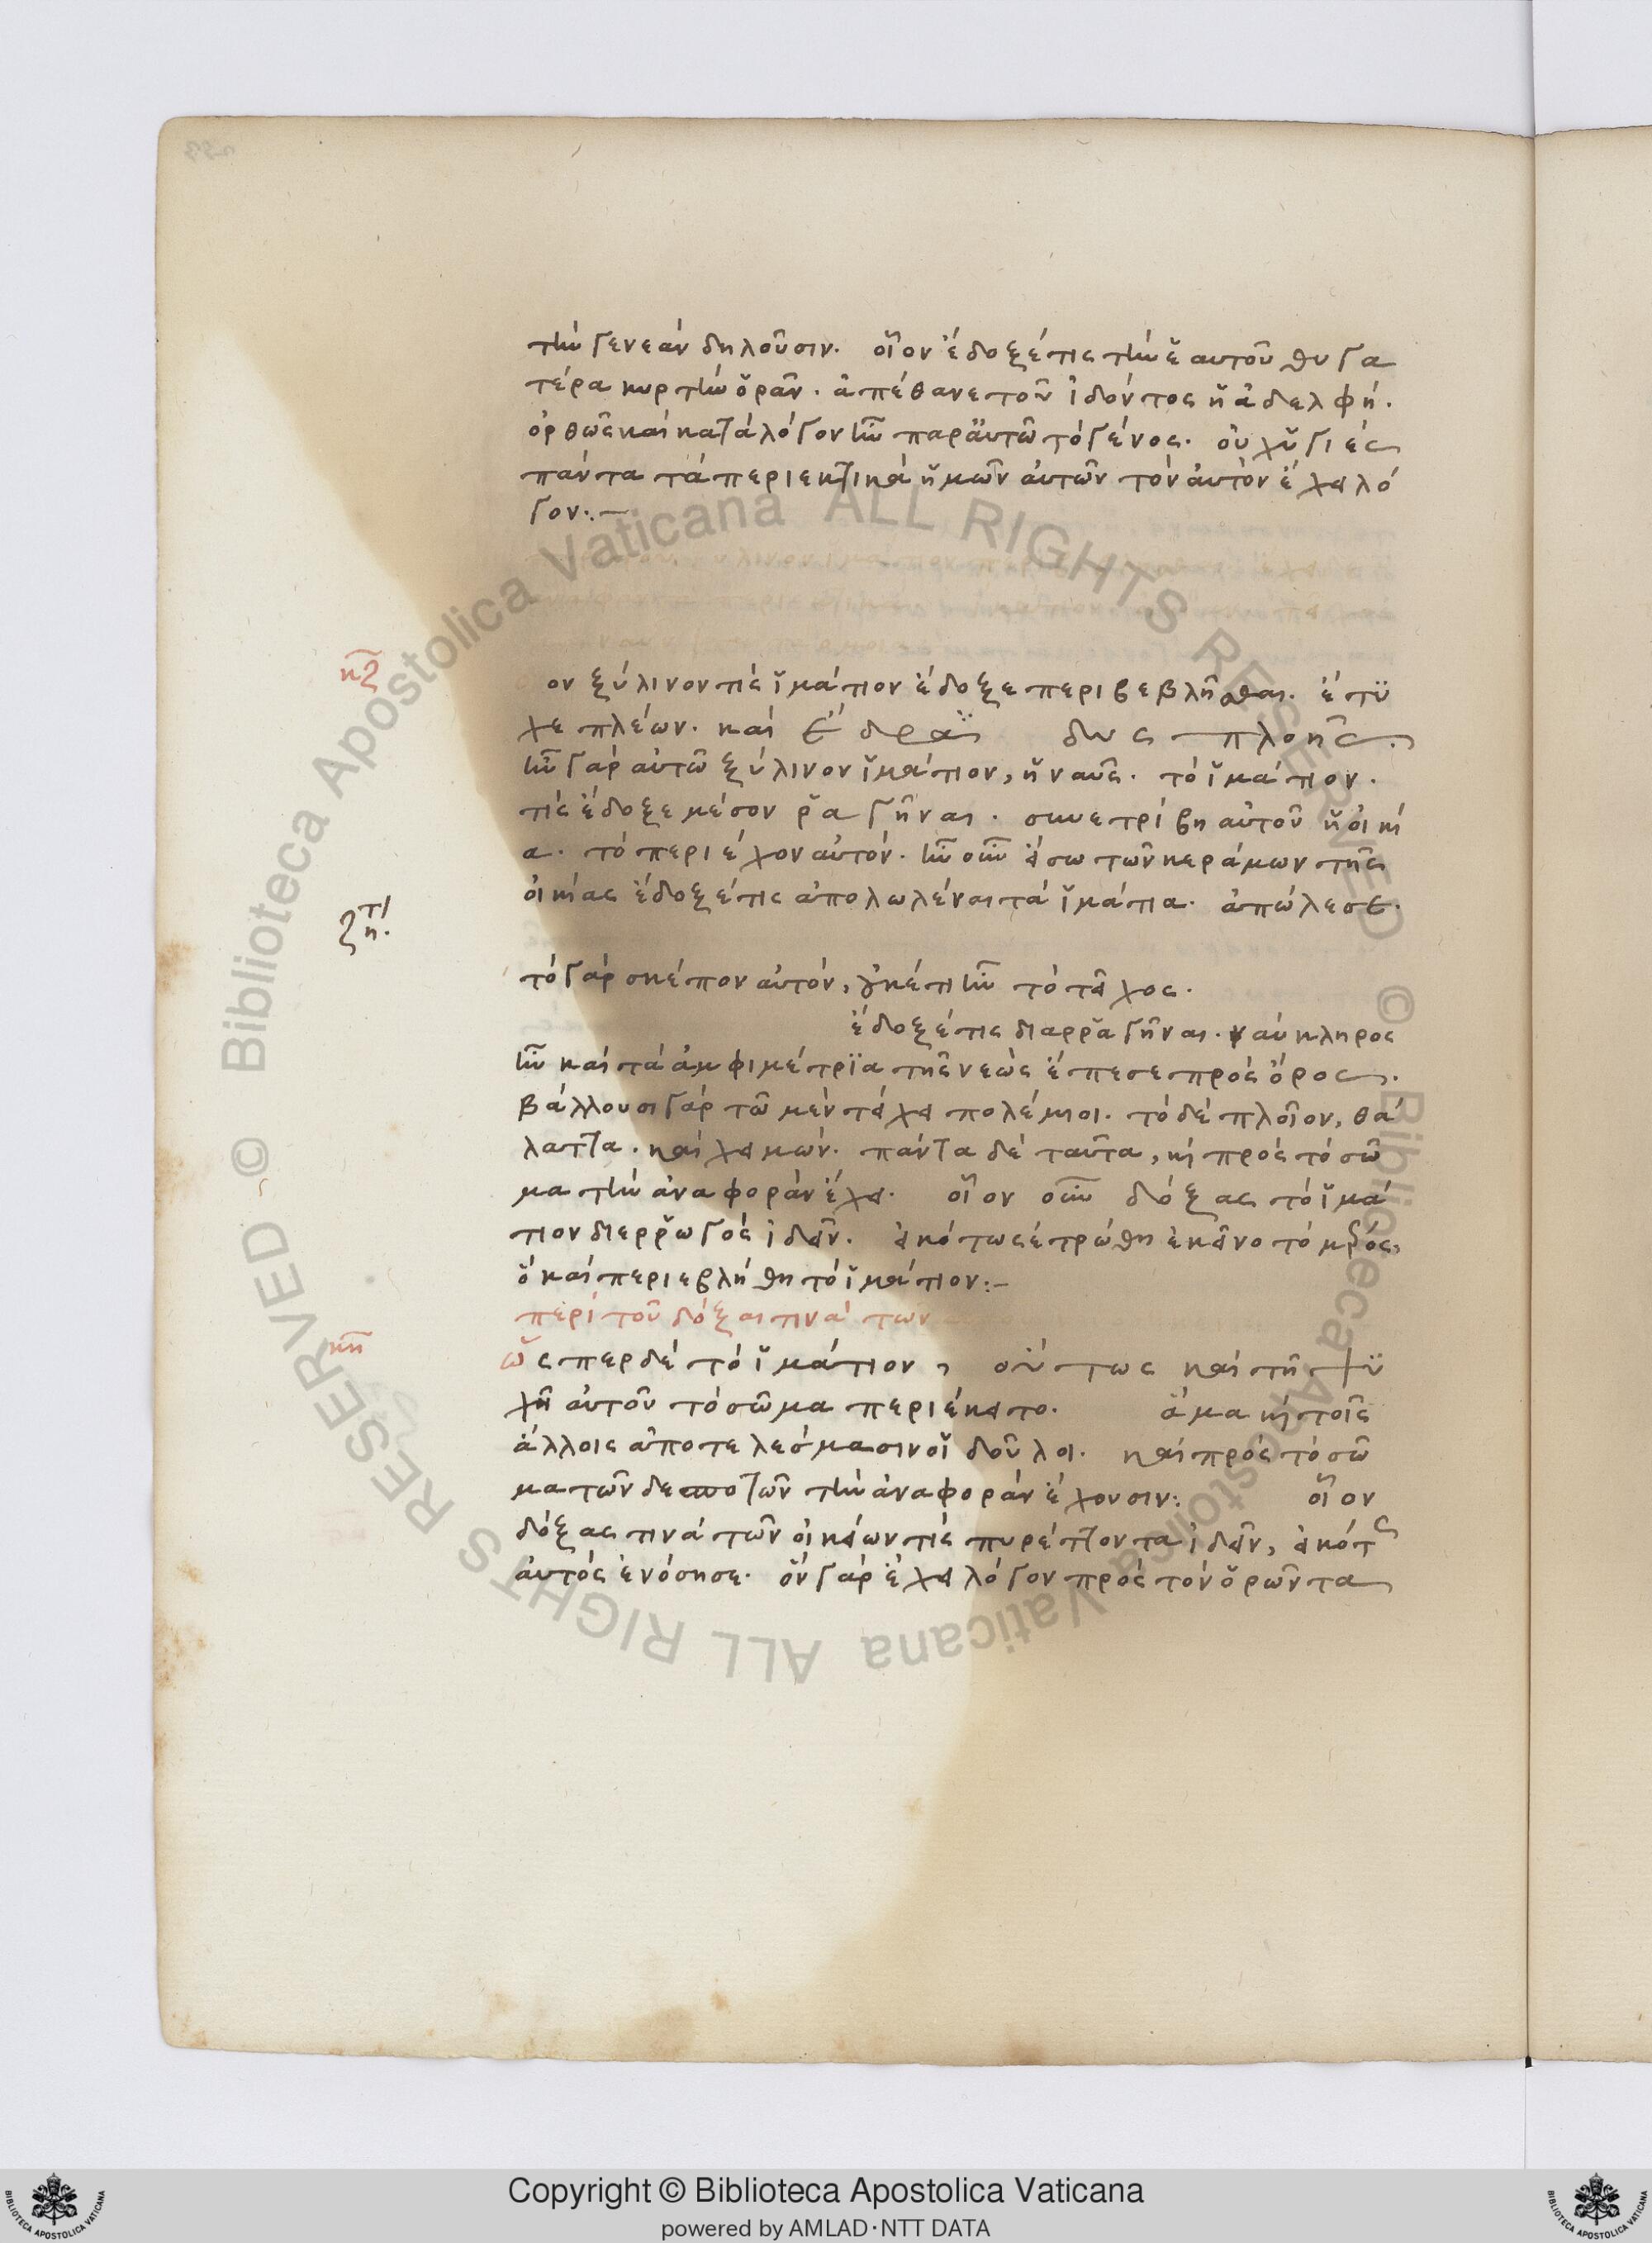 τὴν γενεὰν δηλοῦσιν. οἷον ἔδοξέ τις τὴν ἑαυτοῦ θυγα
τέρα κυρτὴν ὁρᾶν. ἀπέθανε τοῦ ἰδόντος ἡ ἀδελφή.
ὀρθῶς καὶ κατὰ λόγον ἦν παρ' αὐτῶ τὸ γένος. οὐχ ὑγιὲς
πάντα τὰ περιεκτικὰ ἡμῶν αὐτῶν τὸν αὐτὸν ἔχει λό
γον:.—
κζ
ον ξύλινον τὶς ἱμάτιον ἔδοξε περιβεβλῆσθαι. ἔτυ
χε πλέων. καὶ βραδὺς πλοῦς.
ἦν γὰρ αὐτῶ ξύλινον ἱμάτιον, ἡ ναῦς. τὸ ἱμάτιον.
τὶς ἔδοξε μέσον ῥαγῆναι. συνετρίβη αὐτοῦ ἡ οἰκί
α. τὸ περιέχον αὐτόν. ἦν οὖν εἴσω τῶν κεράμων τῆς
οἰκίας ἔδοξέ τις ἀπολωλέναι τὰ ἱμάτια. ἀπώλεσε.
ζη τι
τὸ γὰρ σκέπον αὐτόν, οὐκέτι ἦν τὸ τεῖχος.
ἔδοξέ τις διαρραγῆναι. ναύκληρος
ἦν καὶ τὰ ἀμφιμέτρια τῆς νεὼς ἔπεσε πρὸς ὄρος.
βάλλουσι γὰρ τῶ μὲν τείχει πολέμιοι. τὸ δὲ πλοῖον, θά
λαττα. καὶ χειμών. πάντα δὲ ταῦτα, κὶ πρὸς τὸ σῶ
μα τὴν ἀναφορὰν ἔχει. οἷον οὖν δόξας τὸ ἱμά
τιον διερρωγὸς ἰδεῖν. εἰκότως ἐτρώθη ἐκεῖνο τὸ μέρος,
ὃ καὶ περιεβλήθη τὸ ἱμάτιον:—
περὶ τοῦ δόξαι τινὰ τῶν
κη
ὥσπερ δὲ τὸ ἱμάτιον, οὕτως καὶ τῆ ψυ
χῆ αὐτοῦ τὸ σῶμα περιέκειτο. ἅμα κὶ τοῖς
ἄλλοις ἀποτελέσμασιν οἱ δοῦλοι. καὶ πρὸς τὸ σῶ
μα τῶν δεσποτῶν τὴν ἀναφορὰν ἔχουσιν: οἷον
δόξας τινὰ τῶν οἰκείων τὶς πυρέττοντα ἰδεῖν, εἰκότς
αὐτὸς ἐνόσησε. ὃν γὰρ ἔχει λόγον πρὸς τὸν ὁρῶντα
© Biblioteca Apostolica Vaticana ALL RIGHTS RESERVED © Biblioteca Apostolica Vaticana ALL RIGHTS RESERVED
Copyright © Biblioteca Apostolica Vaticana
powered by AMLAD·NTT DATA
BIBLIOTECA APOSTOLICA VATICANA
BIBLIOTECA APOSTOLICA VATICANA